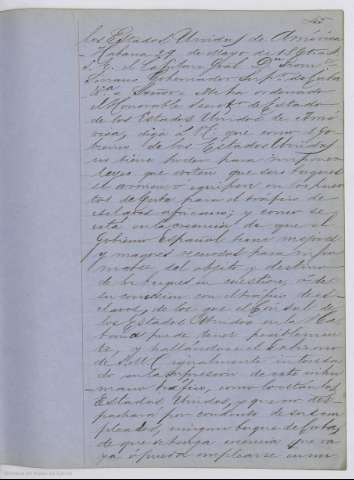 los Estados Unidos de America
Habana 29 de Mayo de 186
S. E. el Capitan Gral. Dn Fran.co
Serrano Gobernador Sup.or de Cuba
&.a Señor: Me ha ordenado
el Honorable Secret.o de Estado
de los Estados Unidos de Amé-
rica, diga á V.E. que como el Go-
bierno de los Estados Unidos
no tiene poder para imponer
leyes que eviten que sus buques
se armen o equipen en los puer-
tos de Cuba para el tráfico de
esclavos africanos; y como se
está en la creencia de que el
Gobierno Español tiene mejores
y mayores recursos para infor-
marse del objeto y destino
de los buques en cuestion, ó de
su conexion con el tráfico de es-
clavos, de los que el Consul de
los Estados Unidos en la Ha-
bana puede tener posiblemen-
te, y hallandose el Gabierno
de S.M.C. igualmente interesa-
do en la supresion de este inhu-
mano tráfico, como lo estan los
Estados Unidos, y que no des-
pachará por conducto de sus em-
pleados, ningun buque de Cuba,
de que se tenga creencia que va-
ya ó pueda emplearse en un